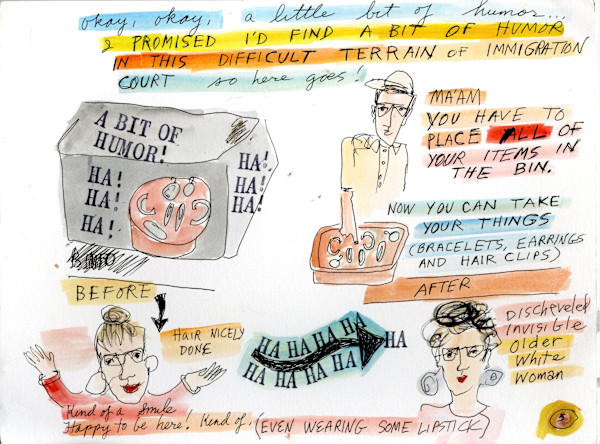 okay, okay, a little bit of humor...
I PROMISED I'D FIND A BIT OF HUMOR
IN THIS DIFFICULT TERRAIN OF IMMIGRATION
COURT so here goes!
A BIT OF
HUMOR!
HA!
HA!
HA!
HA!
HA!
HA!
MA'AM
YOU HAVE TO
PLACE ALL OF
YOUR ITEMS IN
THE BIN.
NOW YOU CAN TAKE
YOUR THINGS
(BRACELETS, EARRINGS
AND HAIR CLIPS)
BEFORE
AFTER
HAIR NICELY
DONE
HA HA HA HA HA
HA HA HA HA
Discheveled
Invisible
Older
White
Woman
Kind of a smile
Happy to be here! Kind of.
(EVEN WEARING SOME LIPSTICK)
5